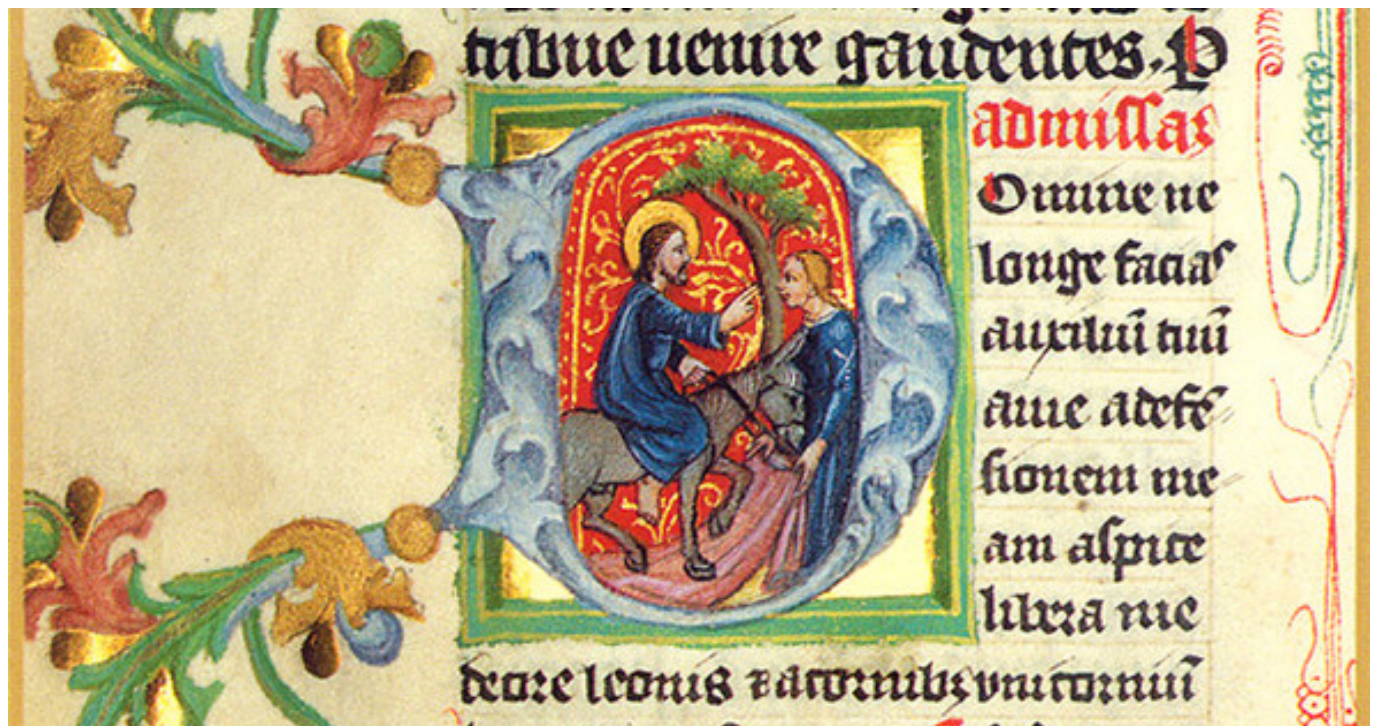 tribue uenire gaudentes. P
admissas
DOmine ne
longe facias
auxiliū tuū
ame adefē
sionem me
am aspice
libera me
deore leonis ⁊ acornibꝫ vnicorniū